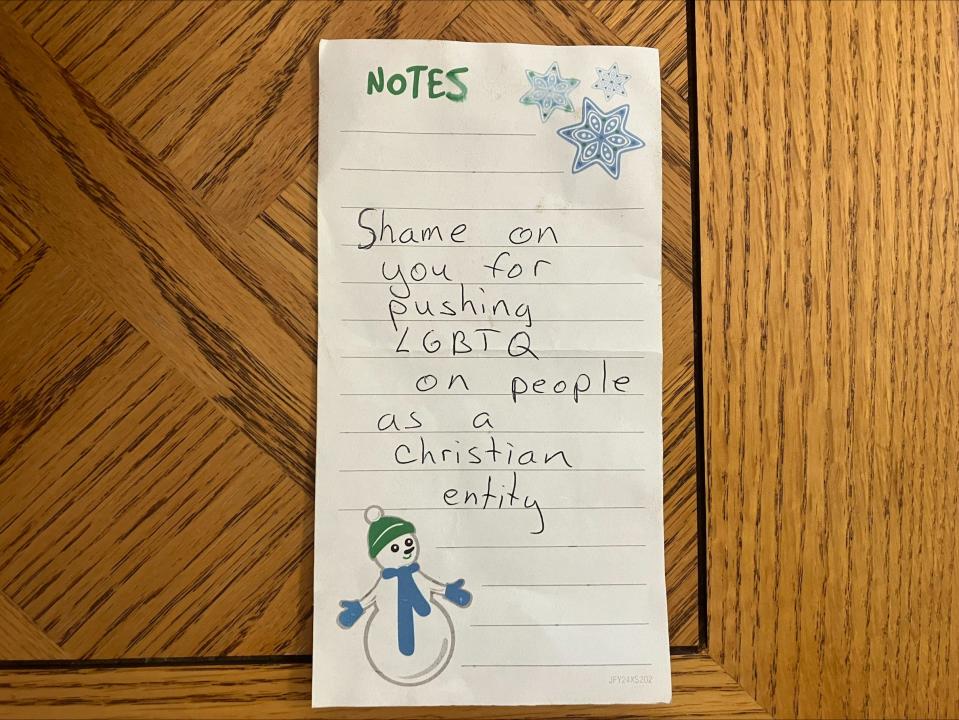 NOTES
Shame on
you for
pushing
LGBTQ
on people
as a
christian
entity
JFY24XS202